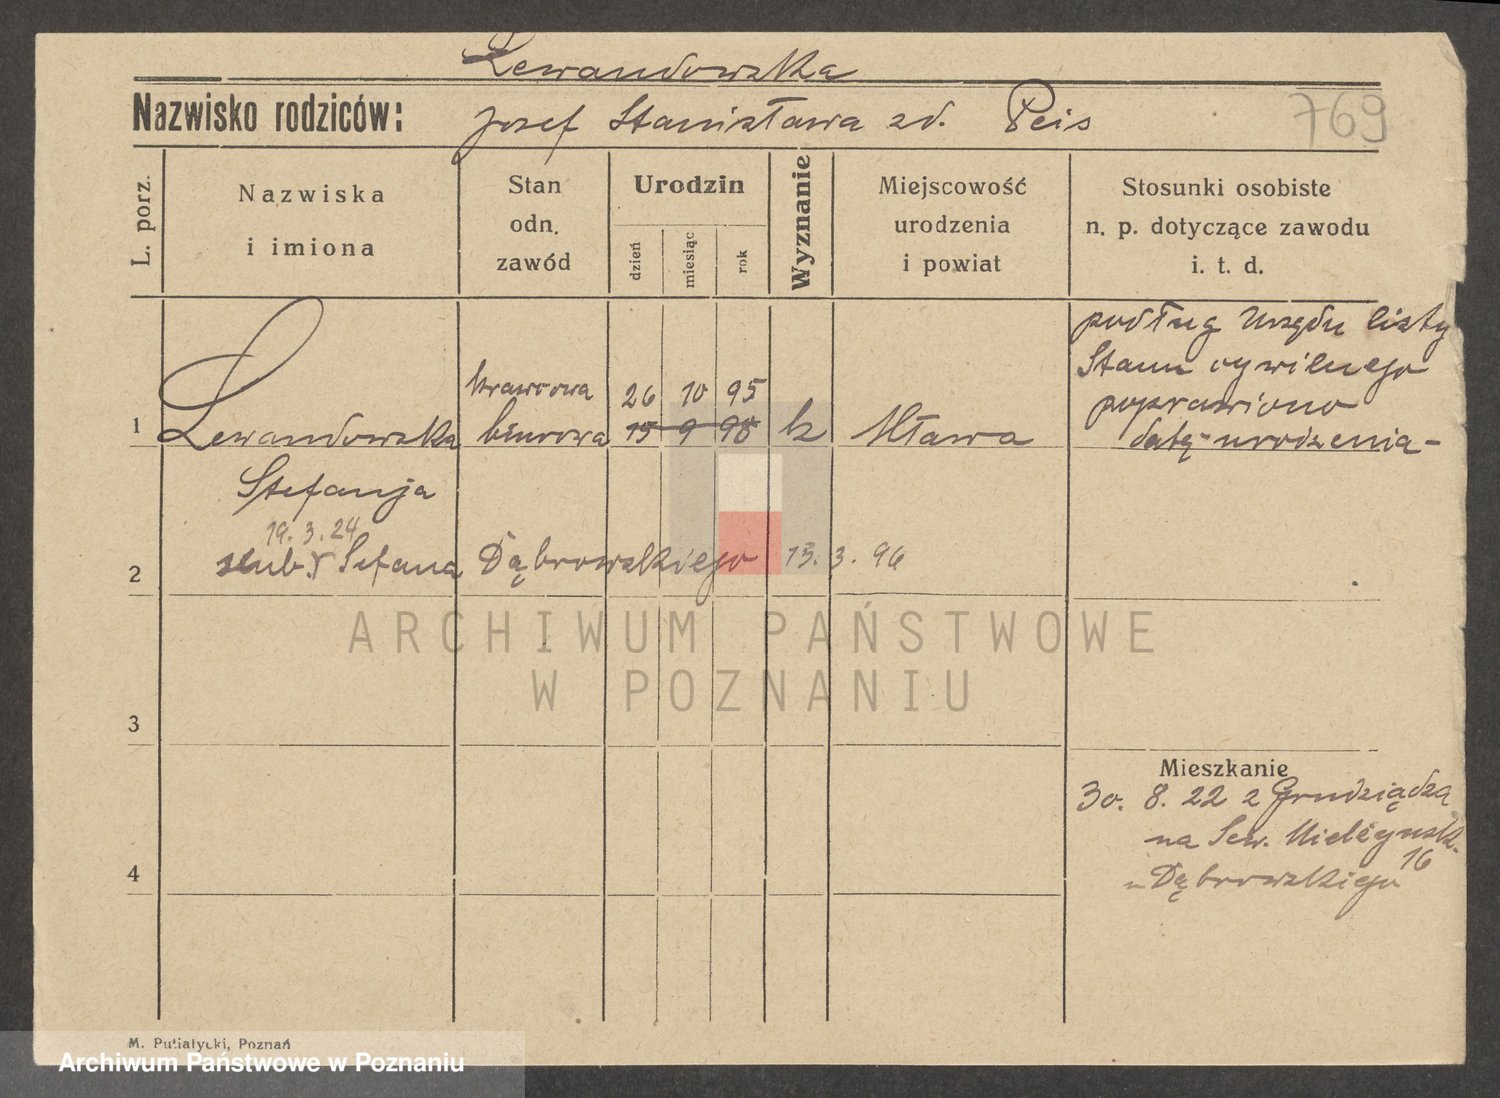 Lewandowska
Nazwisko rodziców: Jozef Stanisława zd. Peis
769
L. porz.
Nazwiska
i imiona
Stan
odn.
zawód
Urodzin
dzień
miesiąc
rok
Wyznanie
Miejscowość
urodzenia
i powiat
Stosunki osobiste
n. p. dotyczące zawodu
i. t. d.
podług Urzędu listy
Stanu cywilnego
poprawiono
datę urodzenia
krawcowa 26 10 95
1 Lewandowska biurowa 15 9 98 k Mława
Stefanja
19. 3. 24
2 slub. Stefana Dąbrowskiego 13. 3. 96
ARCHIWUM PAŃSTWOWE
W POZNANIU
3
Mieszkanie
30. 8. 22 z Grudziądza
na Sew. Mielżyńsk.
16
4
u Dąbrowskiego
M. Putiatycki, Poznań
Archiwum Państwowe w Poznaniu